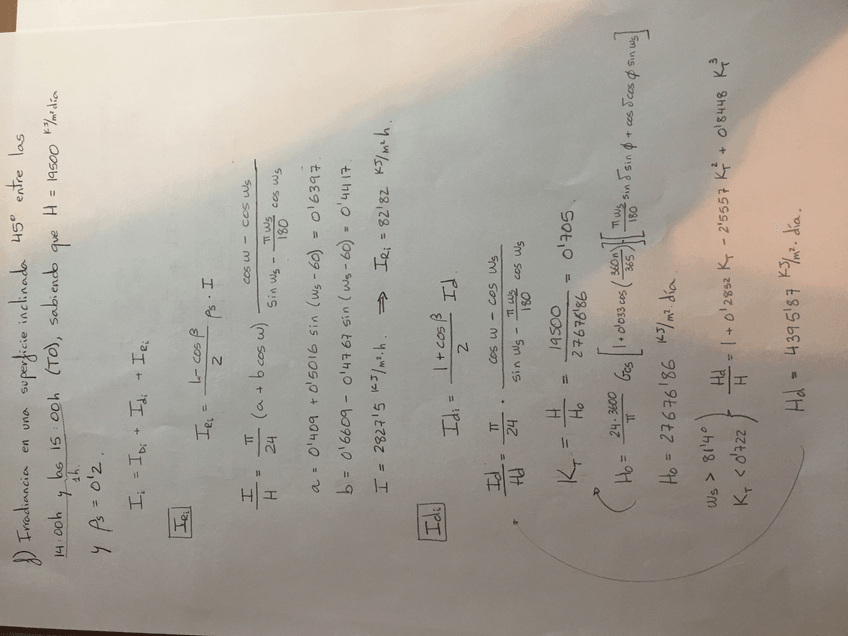 f) Irradiancia en una superficie inclinada 45° entre las
14:00h y las 15:00h (TO), sabiendo que H = 19500 KJ/m²día
1h.
y ρs = 0'2.
Ii = Ibi + Idi + IRi
IRi
IRi = (1 - cos β)/2 ρs · I
I/H = π/24 (a + b cos w) (cos w - cos ws)/(sin ws - (π ws/180) cos ws)
a = 0'409 + 0'5016 sin (ws - 60) = 0'6397
b = 0'6609 - 0'4767 sin (ws - 60) = 0'4417
I = 2827'5 KJ/m²·h. ⇒ IRi = 82'82 KJ/m²h.
Idi
Idi = (1 + cos β)/2 Id
Id/Hd = π/24 · (cos w - cos ws)/(sin ws - (π ws/180) cos ws)
KT = H/Ho = 19500/27676'86 = 0'705.
Ho = (24·3600/π) Gcs [1 + 0'033 cos (360n/365)] [(π ws/180) sin δ sin φ + cos δ cos φ sin ws]
Ho = 27676'86 KJ/m²·día
ws > 81'4°
KT < 0'722 } Hd/H = 1 + 0'2832 KT - 2'5557 KT² + 0'8448 KT³
Hd = 4395'87 KJ/m²·día.